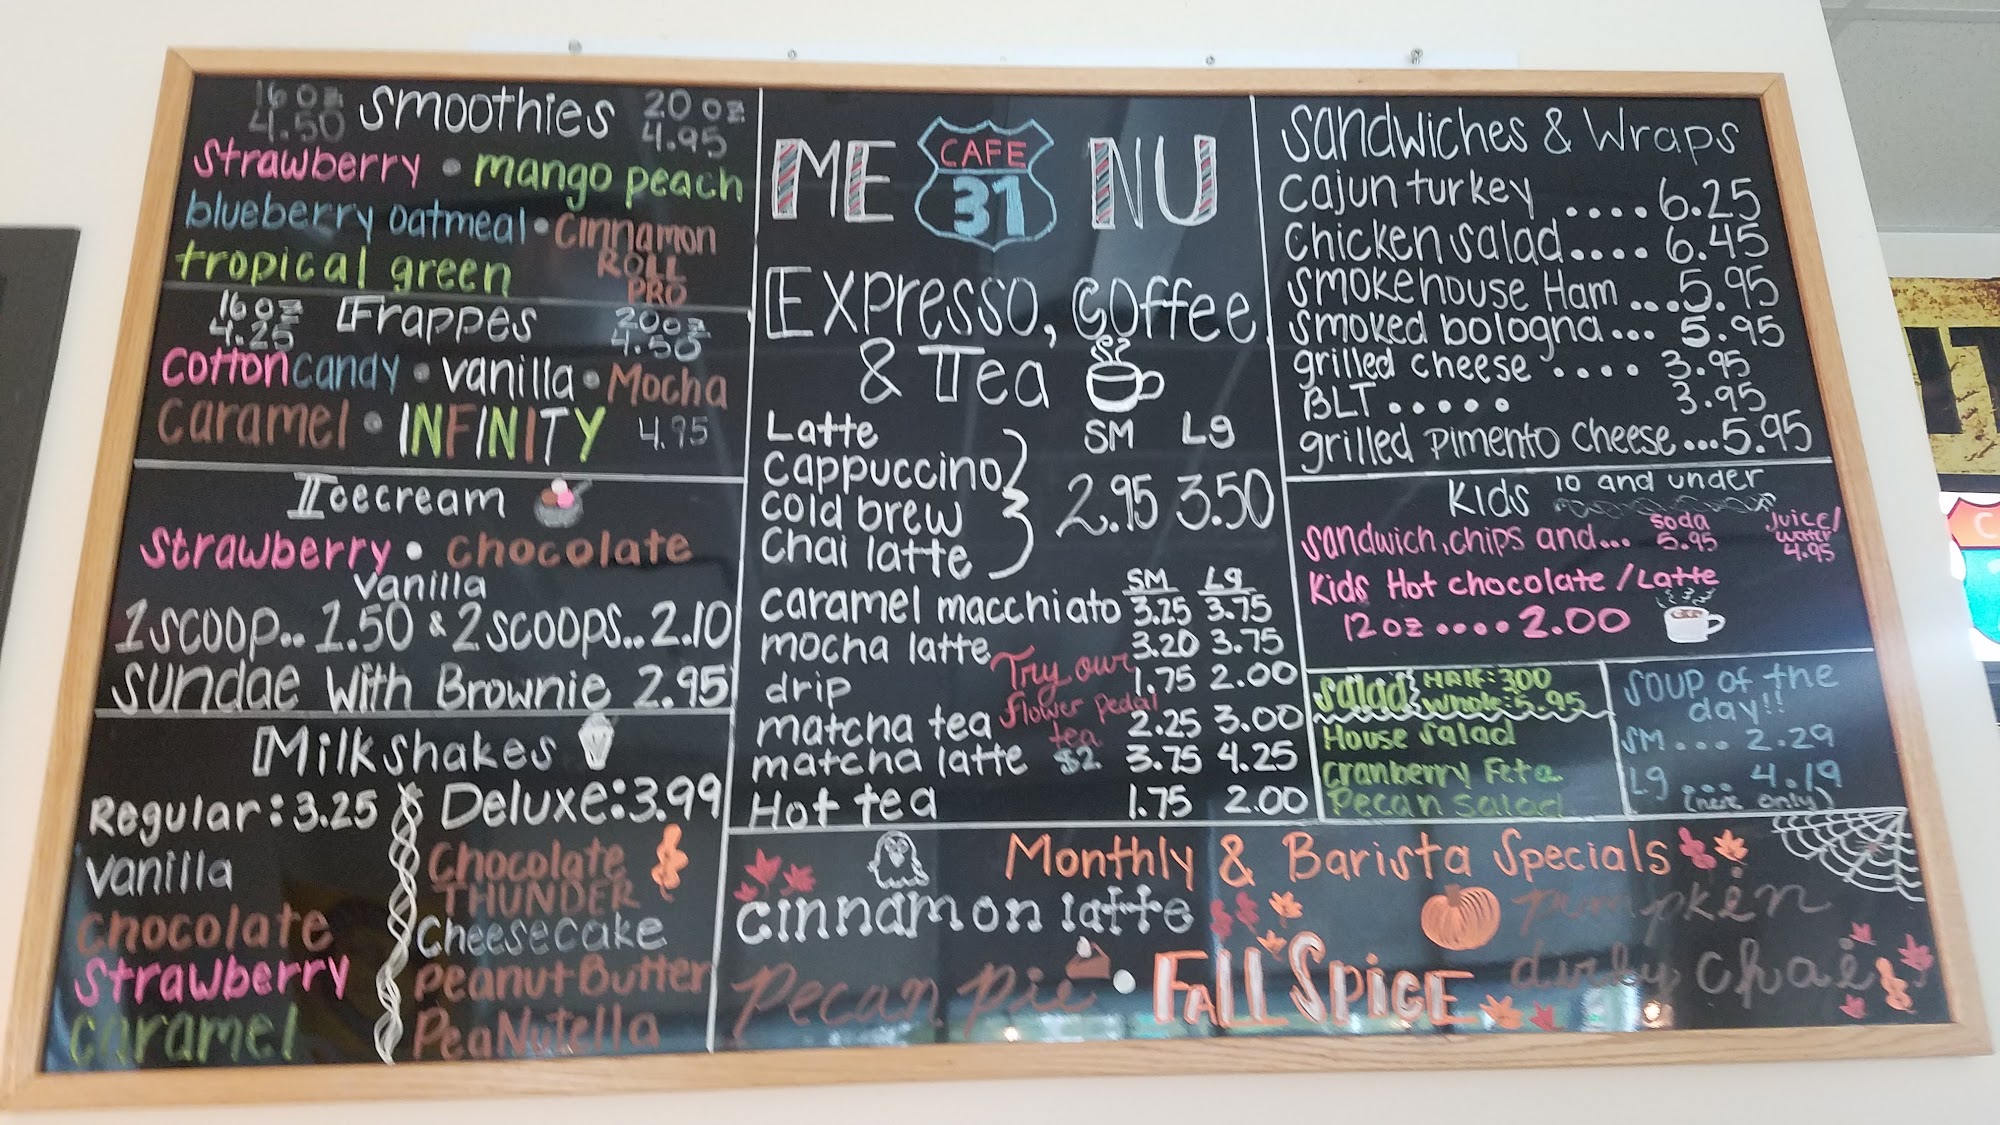 16 oz 4.50 Smoothies 20 oz 4.95
Strawberry • mango peach
blueberry oatmeal • Cinnamon ROLL PRO
tropical green
16 oz 4.25 Frappes 20 oz 4.50
Cotton candy • vanilla • Mocha
Caramel • INFINITY 4.95
Icecream
Strawberry • chocolate
Vanilla
1 scoop.. 1.50 & 2 scoops.. 2.10
Sundae With Brownie 2.95
Milkshakes
Regular: 3.25
Vanilla
chocolate
Strawberry
caramel
Deluxe: 3.99
Chocolate
THUNDER
Cheesecake
Peanut Butter
PeaNutella
ME CAFE 31 NU
Expresso, Coffee
& Tea
SM Lg
Latte
Cappuccino
cold brew
Chai latte
2.95 3.50
SM Lg
caramel macchiato 3.25 3.75
mocha latte 3.20 3.75
drip 1.75 2.00
matcha tea 2.25 3.00
matcha latte 3.75 4.25
Hot tea 1.75 2.00
Try our
flower pedal
tea
$2
Sandwiches & Wraps
Cajun turkey .... 6.25
Chicken salad.... 6.45
Smokehouse Ham ...5.95
Smoked bologna... 5.95
grilled cheese .... 3.95
BLT ..... 3.95
grilled pimento Cheese...5.95
Kids 10 and under
Sandwich, chips and... soda 5.95 juice/ water 4.95
Kids Hot chocolate / Latte
12 oz .... 2.00
Salad Half: 3.00
Whole: 5.95
House Salad
Cranberry Feta
Pecan Salad
Soup of the
day!!
SM... 2.29
Lg ... 4.19
(here only)
Monthly & Barista Specials
cinnamon latte
pumpkin
Pecan pie • Fall Spice
dirty chai